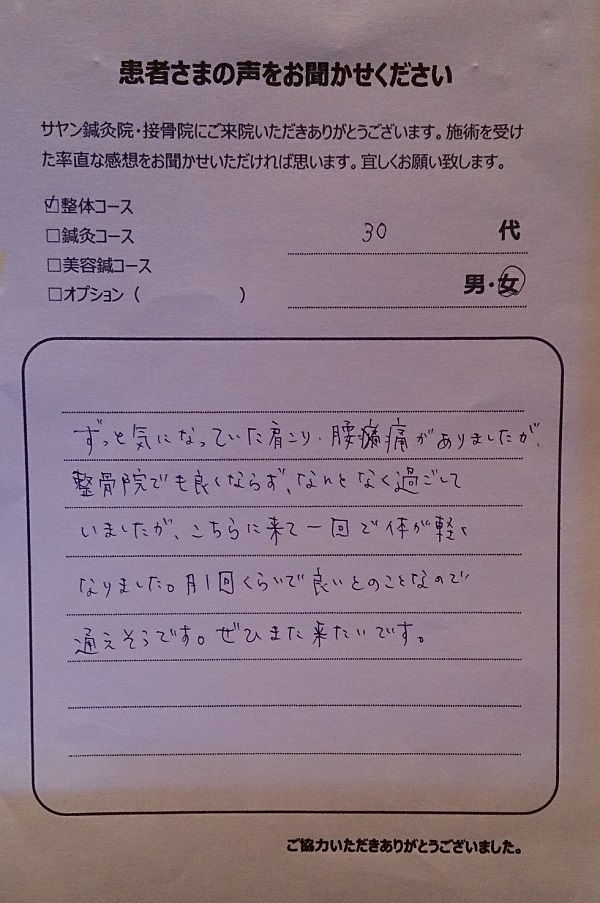 患者さまの声をお聞かせください
サヤン鍼灸院・接骨院にご来院いただきありがとうございます。施術を受け
た率直な感想をお聞かせいただければ思います。宜しくお願い致します。
☑整体コース
□鍼灸コース
□美容鍼コース
□オプション（　　　　　　）
30 代
男・女
ずっと気になっていた肩こり・腰痛がありましたが、
整骨院でも良くならず、なんとなく過ごして
いましたが、こちらに来て一回で体が軽く
なりました。月1回くらいで良いとのことなので
通えそうです。ぜひまた来たいです。
ご協力いただきありがとうございました。